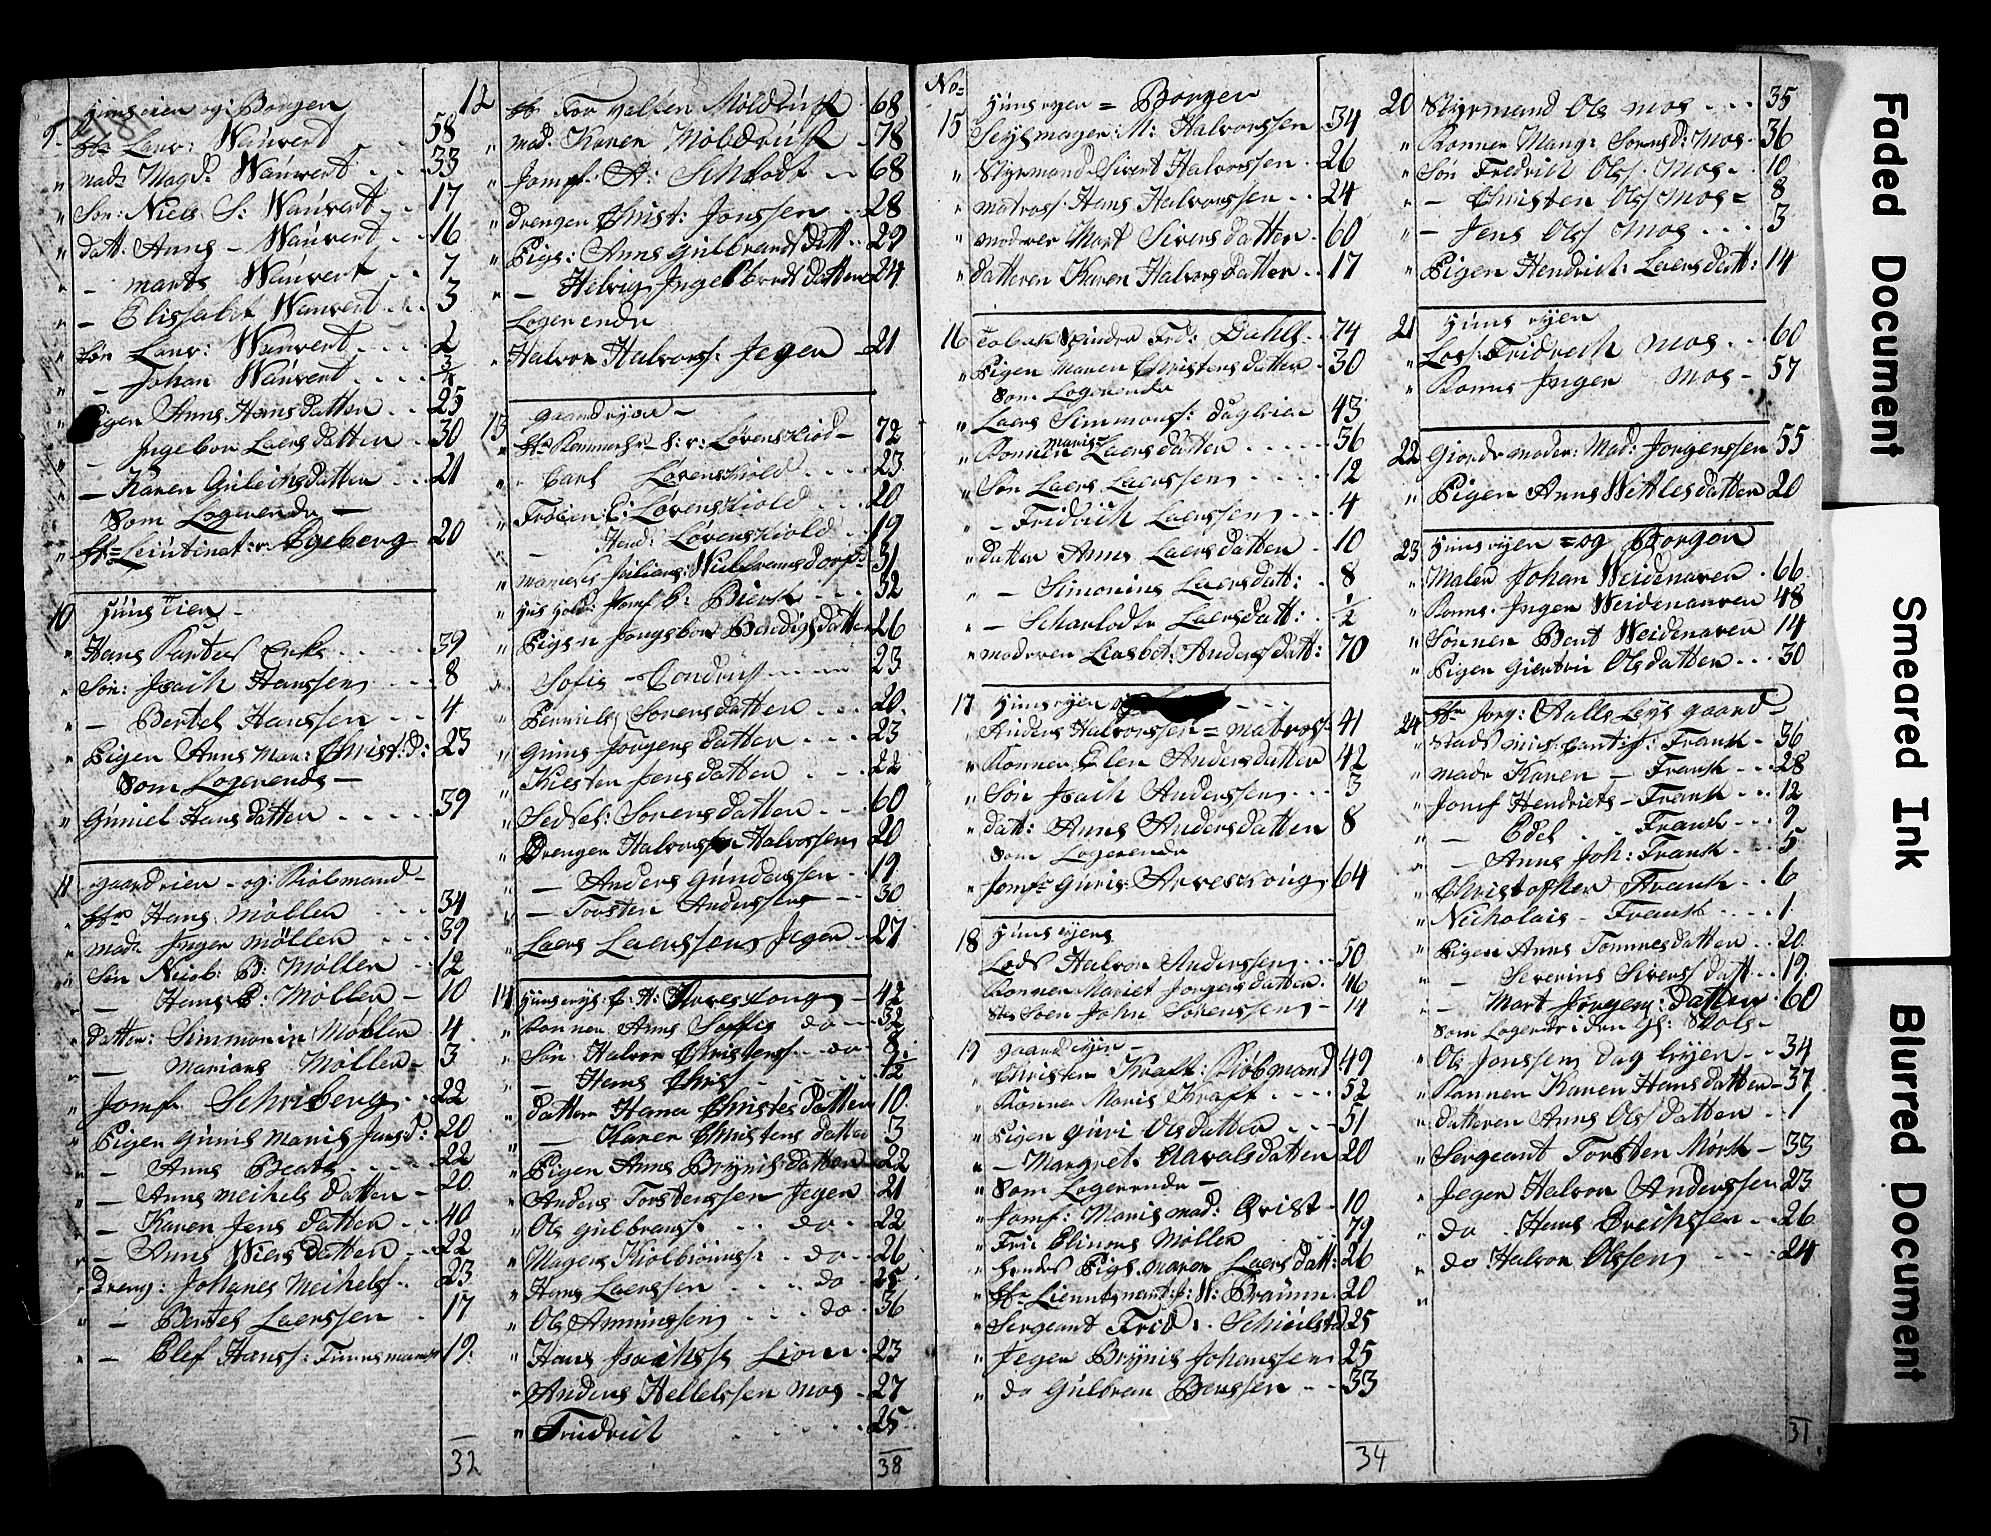 Huuseien og Borger
9. Hr Laur: Wauvert . . 58
" mad: Magd: Wauvert . . 33
" Søn: Niels S: Wauvert . . 17
" datt: Anne - Wauvert . . 16
" - marte Wauvert . . 7
" - Elissabet Wauvert . . . 3
" Søn Laur: Wauvert . . . . 2
" - Johan Wauvert . . . . 3/4
" Pigen Anne Hans datten . . 25
" - Ingebor Laers datten . 30
" - Karen datten . . 21
Som Logerende -
" Hr Leiutinat: v: Ageberg 20
10 Huus Eier -
" Hans . . . . . 39
" Søn: Jsach Hanssen . . . 8
" - Bertel Hanssen . . . 4
" Pigen Anne Mar: Christ: d: 23
Som Logerende -
" Guniel Hans datten . . . . . 39
11 gaardeien - og: Kiøbmand -
" Hr Hans Møller . . . 34
" mad: Inger Møller . . . 39
" Søn Nicol: B: Møller . . 12
" - Hans B: Møller - 10
" datter: Simmonin Møller 4
" - Mariane Møller - 3
" Jomf. Schriberg . . 22
" Pigen Gunil Maris Jensd: 20
" - Anne Beate . . . . 22
" - Anne Meihels datten - 20
" - Karen Jens datten . . 40
" - Anne Niers datten . . 22
" Dreng: Johanes Meihels . . 23
" - Bertel Laerssen . 17
" - Elef Hanss: 19
32
12 Hr For valter Moldrup . 68
" mad. Karen Moldrup . 78
" Jomf: A: Schiødt . . 68
" drengen Christ: Jonssen . . 28
" Pige: Anne Gulbrands datt . . 29
" - Helvig Ingelbrect datten 24
Logerende
" Halvor Halvorss: Jeger - 21
13 gaardejer -
" Hr Kammerhr S: v: Løvenskiold - 72
" - Carl Løvenskiold . . . . 23
" Frøien: E: Løvenskiold . . . 20
" - Hend: Løvenskiold . . 19
" Juliane: 51
" Huus hold: Jomf B: . . . 32
" Pigen Jngebor Bendigs datten 26
" Sofie - 23
" Pernile Sørens datten . . . 20
" Gunie Jørgens datten . . . 23
" Kiesten Jens datten . . . 22
" Sedsel: Sørens datten . . . 60
" Drengen Halvor Halvorssen 20
" - Anders Gunderssen . . 19
" - Torsten Anderssen - - 30
" Laers Laerssen Jeger . . 27
14 Huusejs C. H: Arreskong - 42
" Konnen Anne Soffie do - 32
" Søn Halvor Christens . . do . . 8
" - Hans Chris . . . . . 9/12
" datten Hana Christes datten 10
" - Karen Christens datten 3
" Pigen Anne Brynils datten - 22
" Anders Torstenssen Jeger 21
" Ole Gulbranss . . do . . 22
" Magers Kiolbiønss: . . do . . 26
" Hans Laerssen . . . . do . . 25
" Ole Amunssen . . . . do . 36
" Hans Jsachssen Lion . . 23
" Anders Hellelssen Mos . . 27
" Friderich . . . . . . . 25
38
No
Huus ejer = Borger
15 Sejlmager: N: Halvorssen 34
" Styrmand Sivert Halvorssen . 26
" Matross: Hans Halvorssen . . 24
" moderen Mart Sivers datten . 60
" datteren Karen Halvors datten . . 17
16 Tobak Spinder Frd: Dahls . . 74
" Pigen Maren Christens datten . 30
Som Logerende
" Laers Simmons: daglejer 43
" Konnen Marie Laers datten . . . . . 56
" Søn Laers Laerssen . . . . 12
" - Fridrich Laerssen . . . 4
" datten Anne Laers datten . 10
" - Simonine Laers datt: . 8
" - Scharlodte Laers datt: . 1/2
" moderen Liesbet: Anders datt: 70
17 Huus ejer . . . .
" Anders Halvorssen = matross 41
" Konnen Elen Anders datten 42
" Søn Jsach Anderssen . . . 3
" datt: Anne Anders datten 8
Som Logerende
" Jomfr Gurie: Arreskong . 64
18 Huus ejers
" Lods Halvor Anderssen . . . 50
" Konnen Mariet Jørgens datten . 46
" Søen John Sørenssen - 14
19 gaard ejer -
" Christen Kraft: Kiøbmand . 49
" Konnen Maris Kraft . . . . 52
" Pigen Guri Ols datten . . . 51
" - Margret: Aavals datten 20
Som Logerende -
" Jomf: Maris mad: Qvist . 10
" Fru Elinora Møller . . . . 79
" hendes Pige maren Laers datt: 26
" Hr Lieunt nant: J: N: Braunn . 20
" Sergeant Frid: . 25
" Jeger Brynil Johanssen 25
" do Gulbran Benssen . . . 33
34
20 Styrmand Ole Mos . . . 35
" Konnen Marg: Sørens d: Mos . 36
" Søn Fredrich Ols: Mos . . 10
" - Christen Ols Mos = 8
" - Jens Ols Mos . . . . 3
" Pigen Hendrict: Laers datt: 14
21 Huus ejer
" Los: Fridrich Mos . . . 60
" Konne Inger Mos - 57
22 Giordemoder: Mad: Jorgenssen 55
" Pigen Anne Wetles datten 20
23 Huus ejer = og Borger
" Maler Johan Weidenaren . 66
" Konne . Inger Weidenaren 48
" Sønnen Bent Weidenaren 14
" Pigen Giertru Ols datten . . . 30
24 Hr Jorg: Aalls Lejs gaard -
" Stads mus. Cantis: Frank - 36
" mad. Karen - Frank . . . 28
" Jomf Hendriete - Frank . . . 12
" - Edel . . Frank . . . 9
" - Anne Joh: Frank . . . 5
" Christopher Frank . . 6
" Nicholais - Frank . . . . 1
" Pigen Anne Tommes datten . . 20
" - Severine Sivers datt . . . 19
" - Mart Jørgens: datten . 60
Som Logende i den gl: Skole -
" Ole Jonssen daglejer . . 34
" Konnen Karen Hans datten - 37
" datteren Anne Ols datten . . 1
" Sergeant Torsten Mørk - 33
" Jeger Halvor Anderssen 23
" do . Hans Brechssen . . . 26
" do Halvor Olssen . . . . 24
"
31
Faded Document
Smeared Ink
Blurred Document